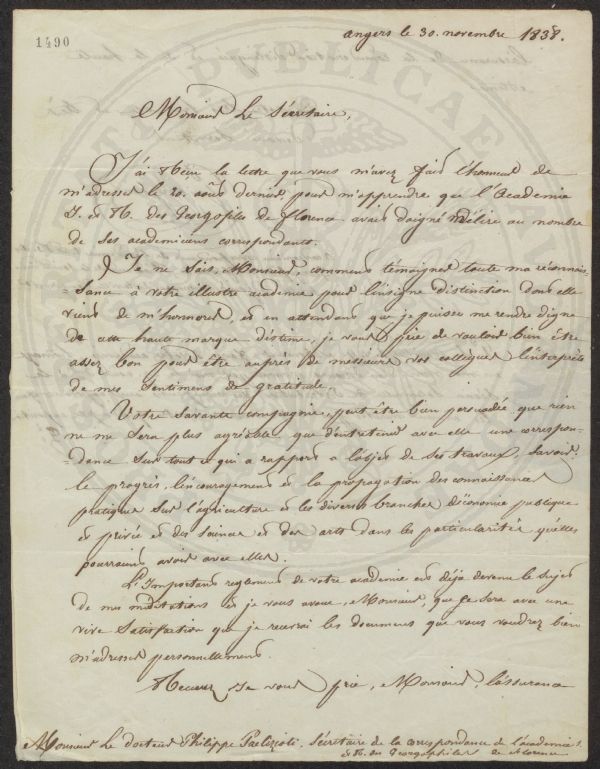 1490
angers le 30. novembre 1838.
Monsieur Le Sécretaire,
J'ai Recu la lettre que vous m'avez fait l'honneur de
m'adresser le 20. août dernier, pour m'apprendre que l'Academie
I. et R. des Georgofiles de florence avait daigné m'élire au nombre
de ses academiciens correspondants.
Je ne sais, Monsieur, comment témoigner toute ma réconnais-
-sance à votre illustre academie pour l'insigne distinction dont elle
vient de m'honorer, et en attendant que je puisse me rendre digne
de cette haute marque d'éstime, je vous prie de vouloir bien être
assez bon pour être auprès de messieurs vos collègues l'interprète
de mes sentimens de gratitude.
Votre savante compagnie, peut être bien persuadée que rien
ne me sera plus agréable que d'entretenir avec elle une correspon-
-dance sur tout ce qui a rapport à l'objet de ses travaux, savoir:
le progrès, l'encouragement et la propagation des connaissances
pratiques sur l'agriculture et les diverses branches d'économie publique
et privée et des sciences et des arts dans les particularités qu'elles
pourraient avoir avec elles.
L'Important reglement de votre academie est déjà devenu le sujet
de mes méditations et je vous avoue, Monsieur, que ce sera avec une
vive satisfaction que je recevrai les documens que vous voudrez bien
m'adresser personnellement.
Recevez, je vous prie, Monsieur, l'assurance
Monsieur Le docteur Philippe Sécrétaire de la correspondance de l'academie I.
et R. des Georgophiles de florence